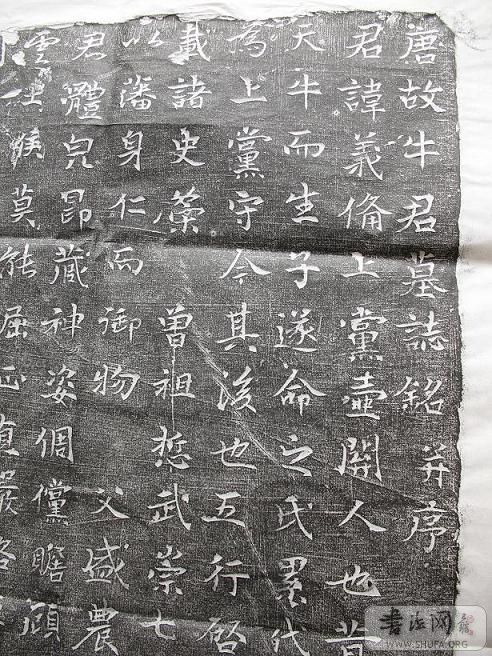 唐故牛君墓誌銘并序
君諱義俻上黨壷關人也昔
天牛而生子遂命之氏累代
為上黨守今其後也五行啓
載諸史榮曾祖悊武崇七
以藩身仁而御物父盛農
君體皃昂藏神姿倜儻瞻顧
雲仕候莫能屈
書法网
WWW.SHUFA.ORG